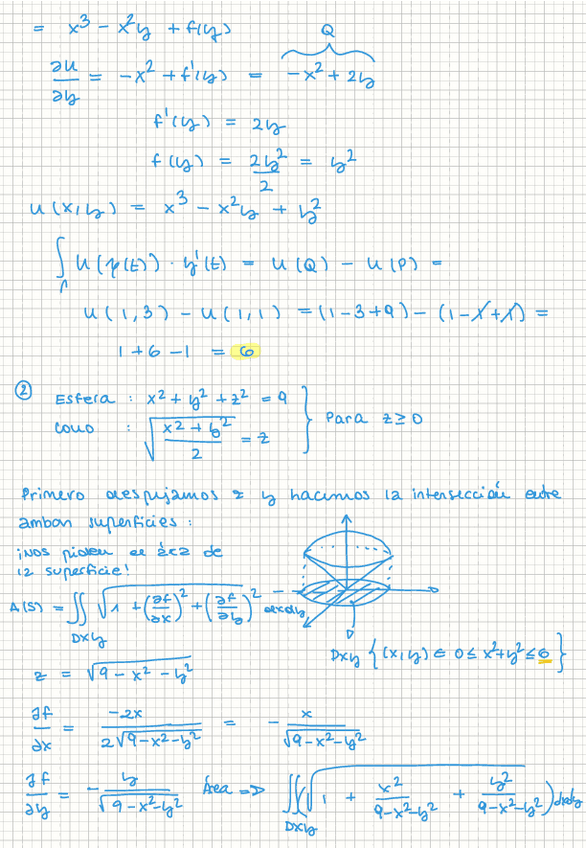 = x³ - x²y + f(y)
Q
∂u/∂y = -x² + f'(y) = -x² + 2y
f'(y) = 2y
f(y) = 2y²/2 = y²
u(x,y) = x³ - x²y + y²
∫ u(γ(t)) · γ'(t) = u(Q) - u(P) =
u(1,3) - u(1,1) = (1-3+9) - (1-1+1) =
1+6-1 = 6
② Esfera : x² + y² + z² = 9
cono : √((x²+y²)/2) = z
} Para z ≥ 0
Primero despejamos z y hacemos la intersección entre
ambas superficies :
¡Nos piden el área de
la superficie!
A(S) = ∬Dxy √(1 + (∂f/∂x)² + (∂f/∂y)²) dxdy
Dxy {(x,y) ∈ 0 ≤ x²+y² ≤ 6}
z = √(9 - x² - y²)
∂f/∂x = -2x/(2√(9-x²-y²)) = - x/√(9-x²-y²)
∂f/∂y = - y/√(9-x²-y²) Área => ∬Dxy (√(1 + x²/(9-x²-y²) + y²/(9-x²-y²))) dxdy